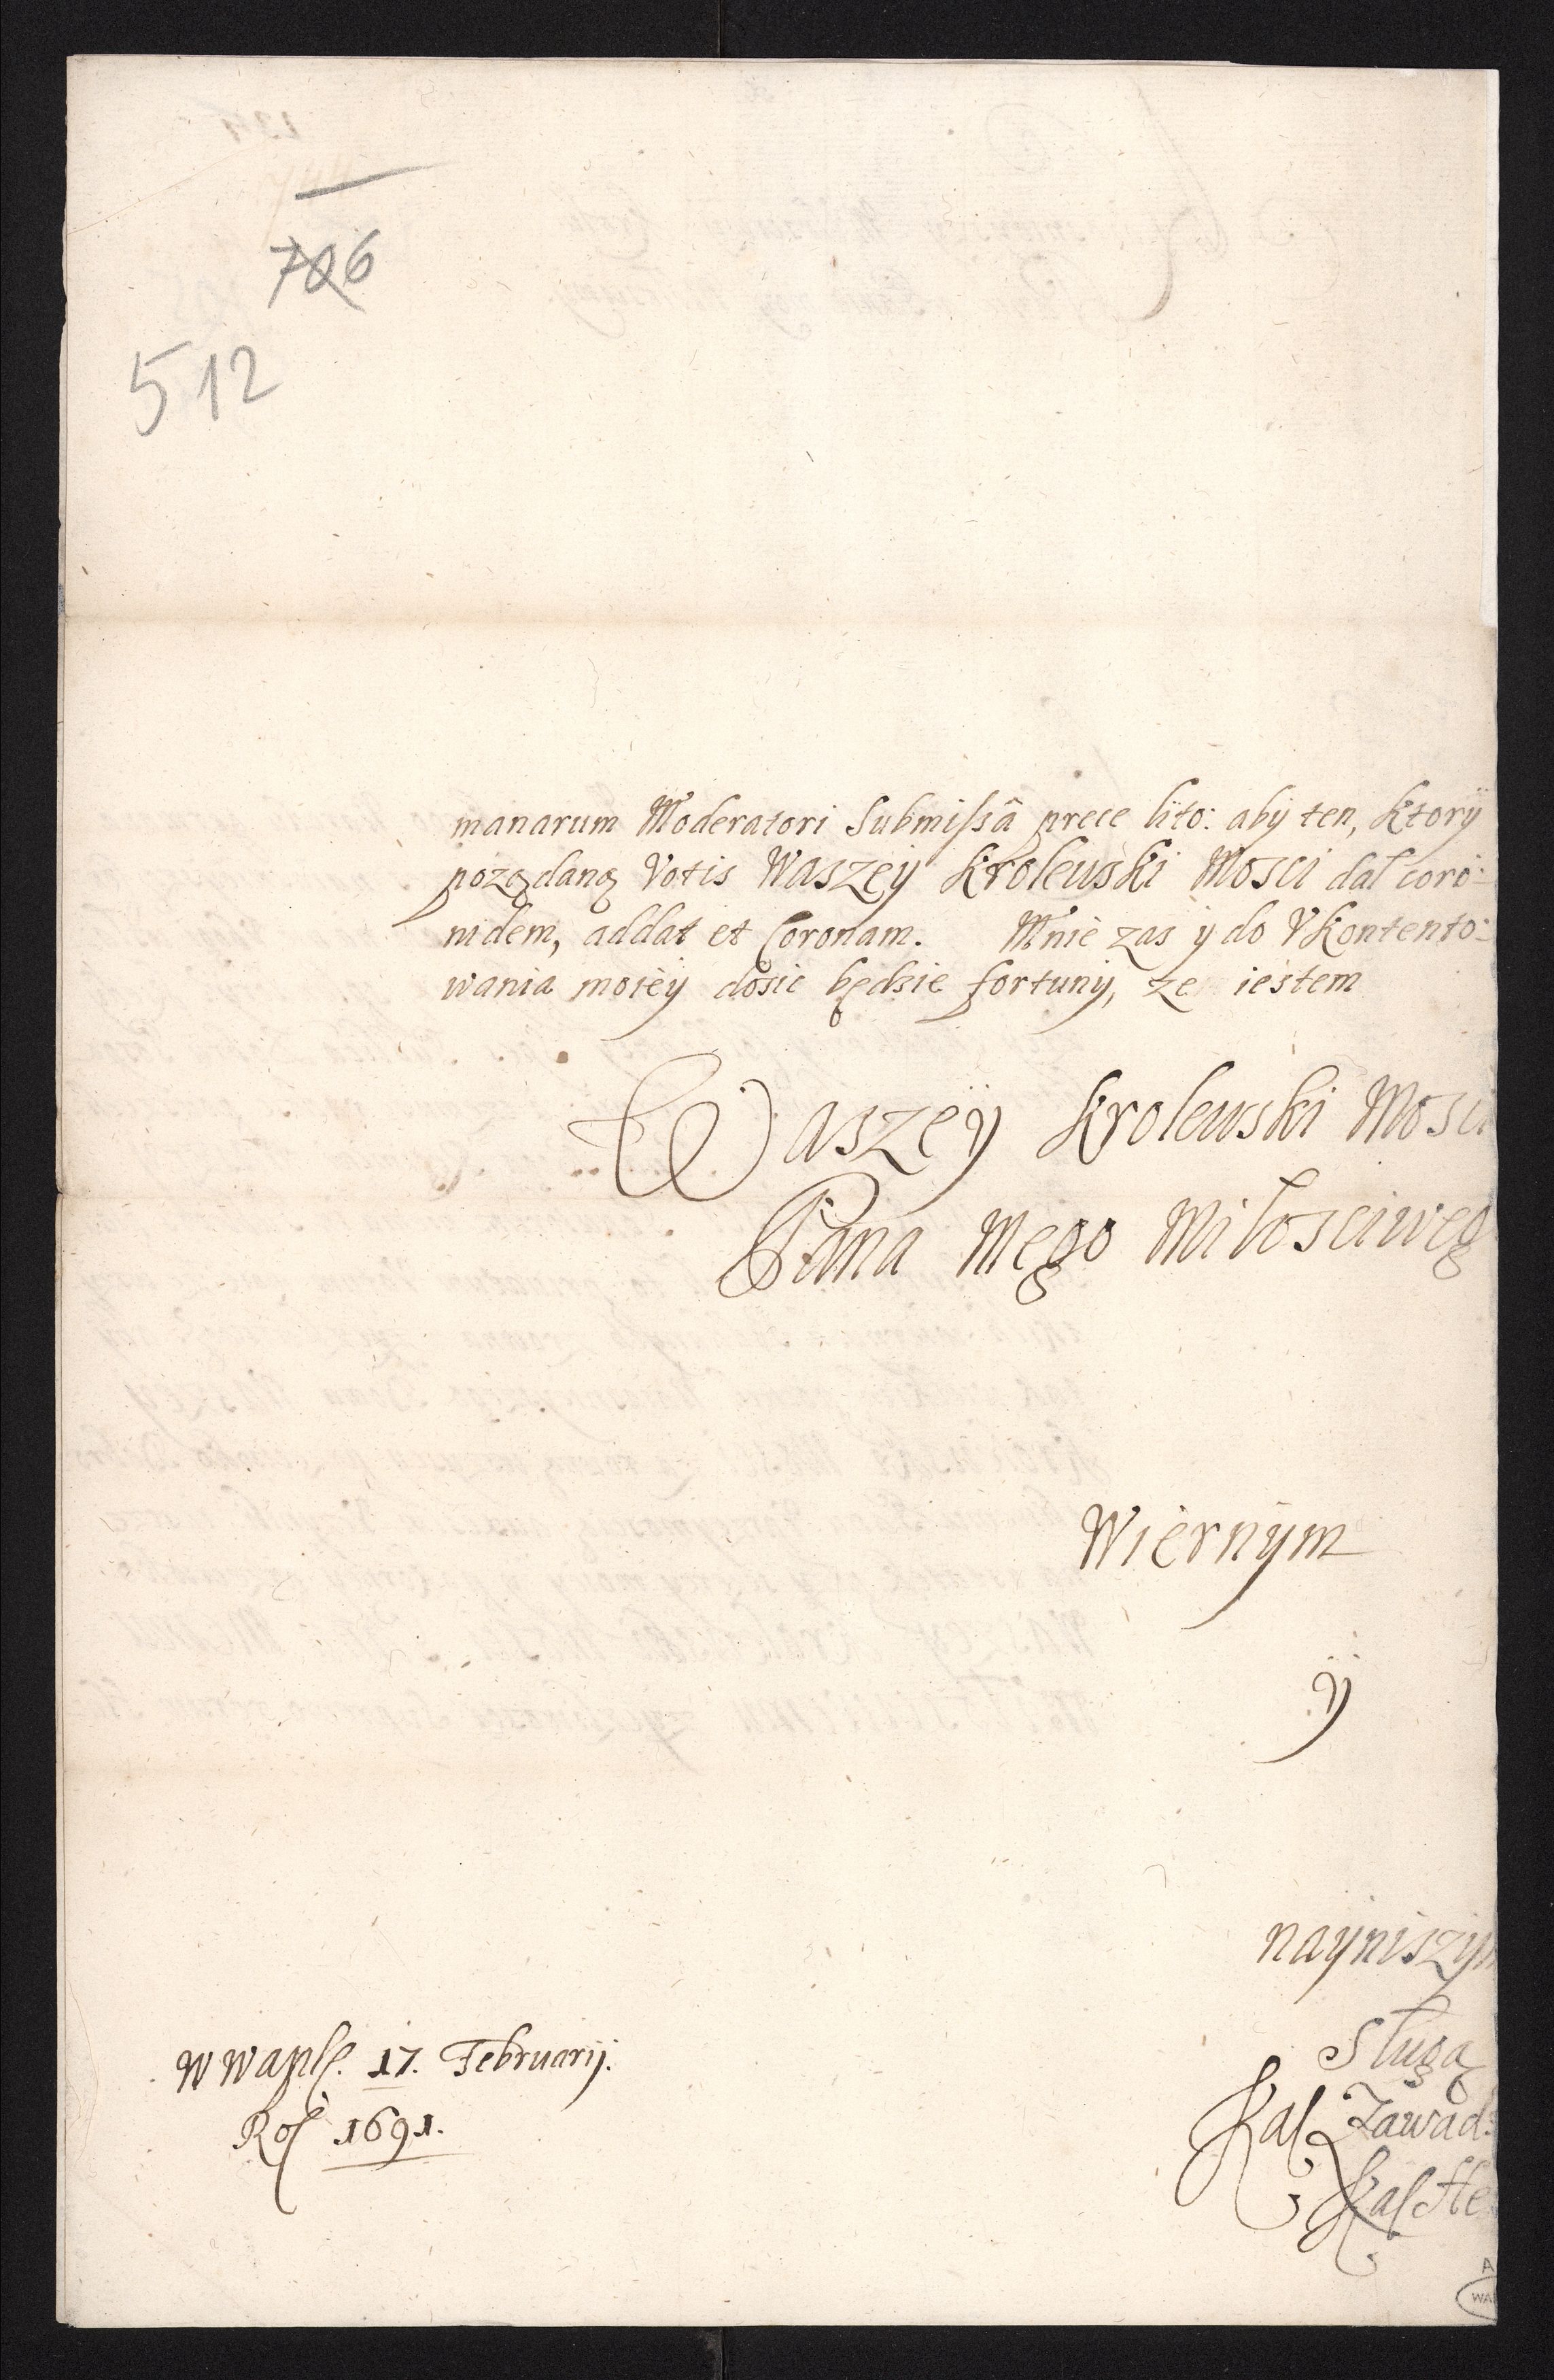 706
512
manarum Moderatori Submissâ prece lito: abÿ ten, ktorÿ
poządaną Votis Waszeÿ Krolewski Mosci dał coro:
nidem, addat et Coronam. Mnie zas ÿ do Vkontento:
wania moieÿ dosic będzie fortunÿ, ze iestem
Waszeÿ Krolewski Mosci
Pana Mego Miłosciweg
Wiernÿm
ÿ
naÿniszÿm
Sługą
W Wapl. 17. Februarij.
Ro 1691.
Zawad: